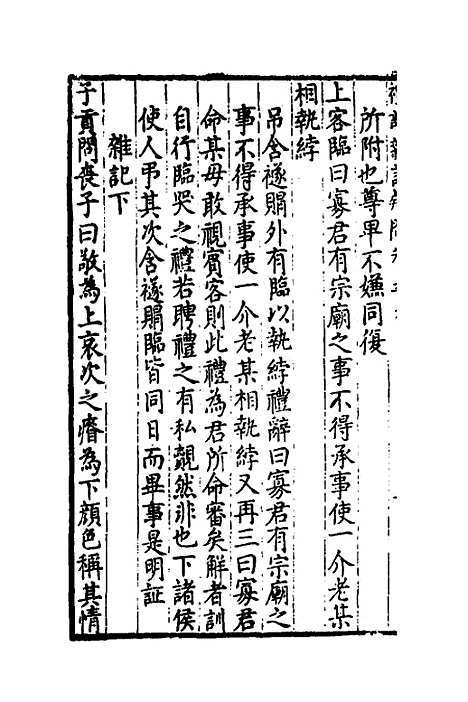 所附也尊卑不嫌同復
上客臨曰寡君有宗廟之事不得承事使一介老某
相執綍
弔含襚賵外有臨以執綍禮辭曰寡君有宗廟之
事不得承事使一介老某相執綍又再三曰寡君
命某毋敢視賓客則此禮為君所命審矣解者訓
自行臨哭之禮若聘禮之有私覿然非也下諸侯
使人弔其次含襚賵臨皆同日而畢事是明証
雜記下
子貢問喪子曰敬為上哀次之瘠為下顔色稱其情